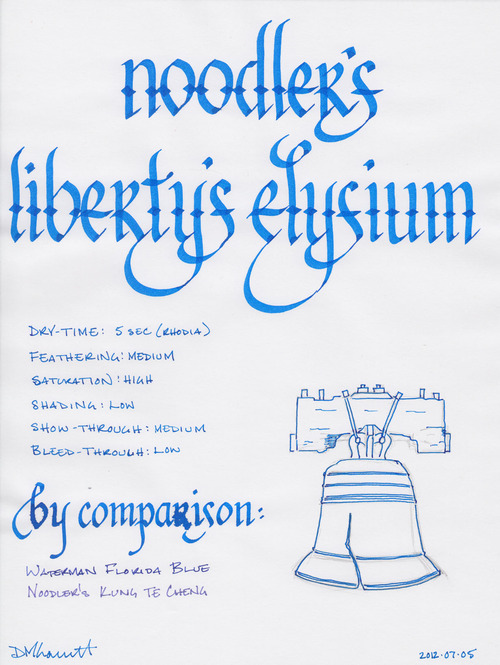 noodler's
liberty's elysium
DRY-TIME: 5 SEC (RHODIA)
FEATHERING: MEDIUM
SATURATION: HIGH
SHADING: LOW
SHOW-THROUGH: MEDIUM
BLEED-THROUGH: LOW
by comparison:
WATERMAN FLORIDA BLUE
NOODLER'S KUNG TE CHENG
2012.07.05